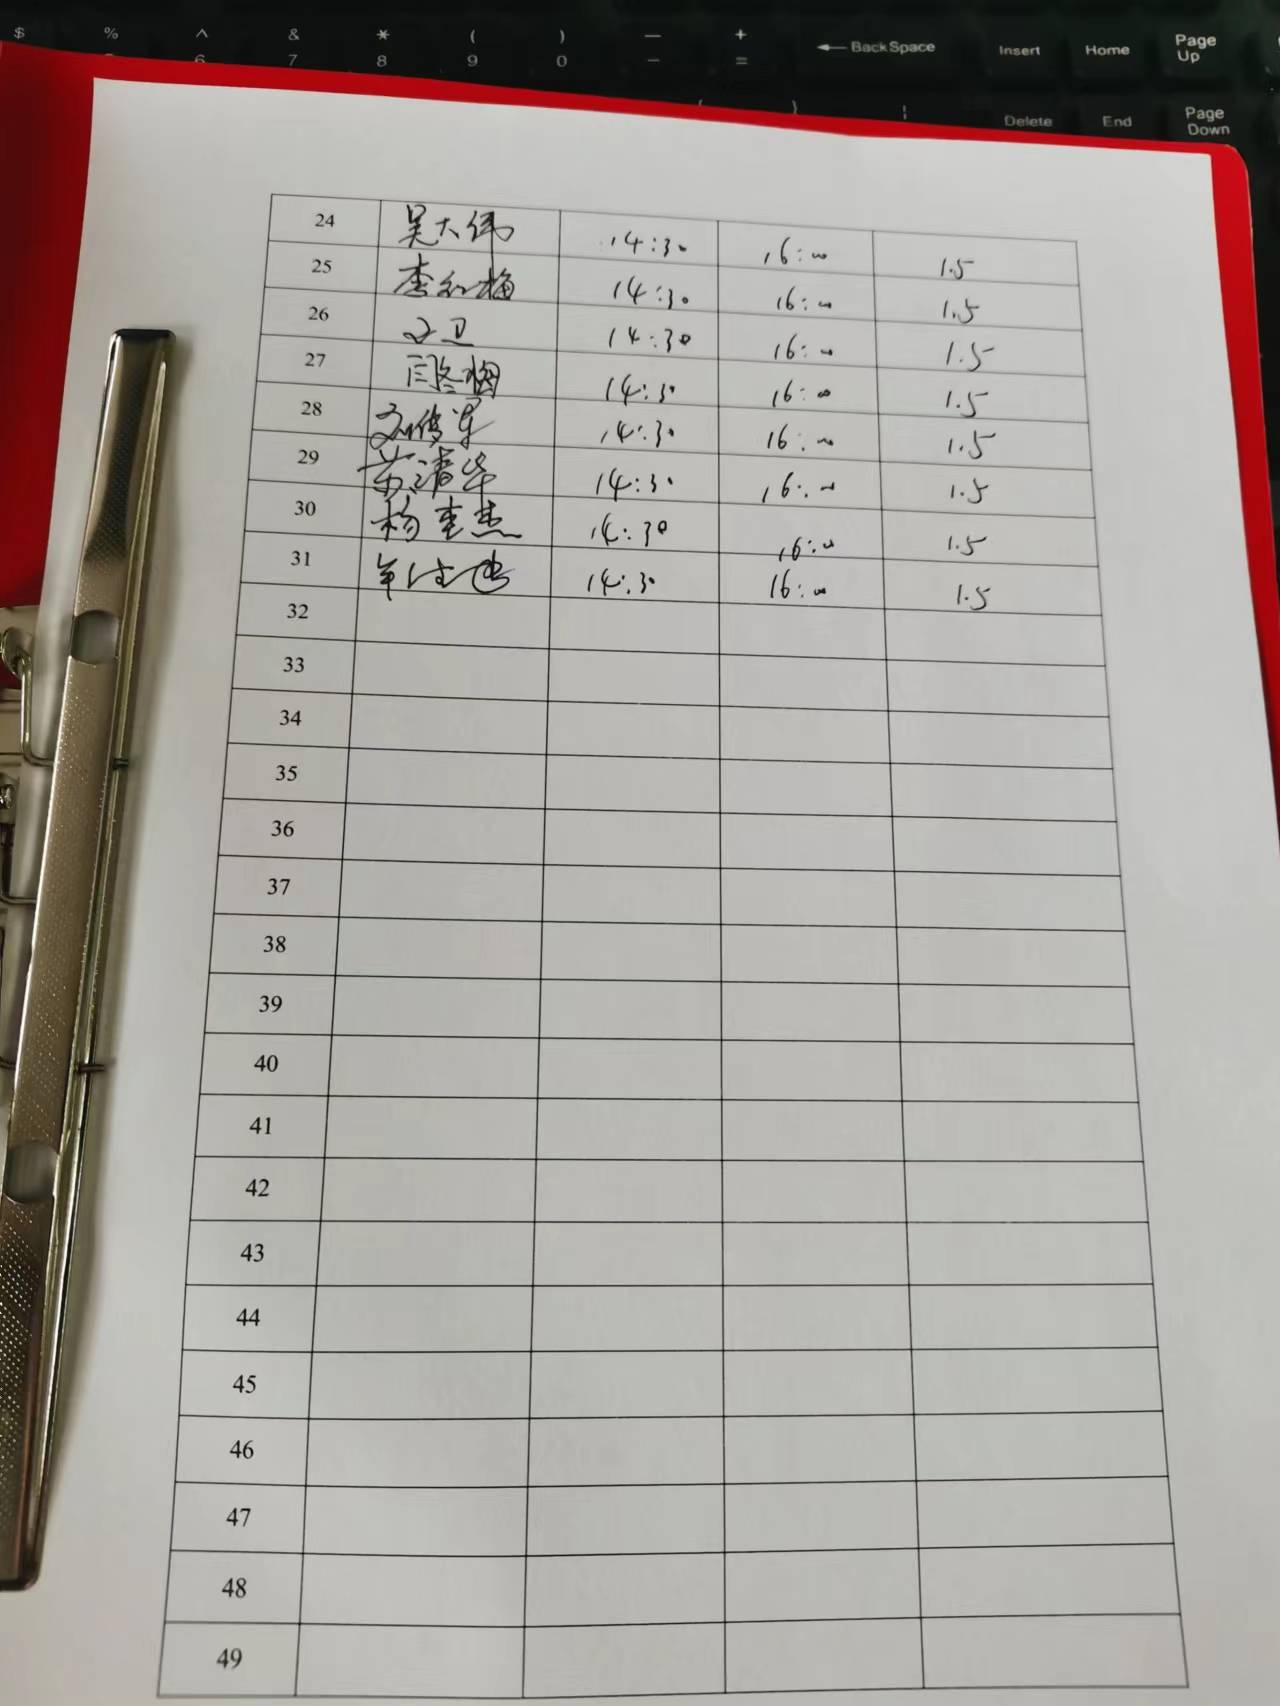 $ % ^ & * ( ) — +
6 7 8 9 0 − = BackSpace Insert Home Page Up
Delete End Page Down
24 吴大伟 14:30 16:00 1.5
25 李红梅 14:30 16:00 1.5
26 文卫 14:30 16:00 1.5
27 闫冬梅 14:30 16:00 1.5
28 刘俊军 14:30 16:00 1.5
29 苏清华 14:30 16:00 1.5
30 杨奎杰 14:30 16:00 1.5
31 14:30 16:00 1.5
32
33
34
35
36
37
38
39
40
41
42
43
44
45
46
47
48
49